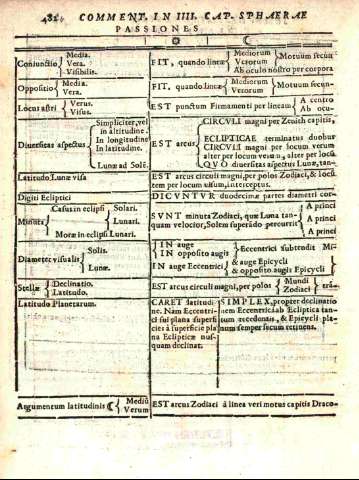 482 COMMENT. IN IIII. CAP. SPHAERAE
PASSIONES
Coniunctio { Media. Vera. Visibilis.
FIT, quando lineæ { Mediorum Verorum Ab oculo nostro per corpora } Motuum secun-
Oppositio { Media. Vera.
FIT, quando lineæ { Mediorum Verorum } Motuum secun-
Locus astri { Verus. Visus.
EST punctum Firmamenti per lineam { A centro Ab ocu-
Diuersitas aspectus { Simpliciter, vel in altitudine. In longitudine In latitudine. Lunæ ad Solē.
EST arcus { CIRCVLI magni per Zenith capitis,
ECLIPTICAE terminatus duobus
CIRCVLI magni per locum verum
alter per locum verum, alter per locū
QVO diuersitas aspectus Lunæ, tan-
Latitudo Lunæ visa
EST arcus circuli magni, per polos Zodiaci, & locū
tem per locum uisum, interceptus.
Digiti Ecliptici
DICVNTVR duodecimæ partes diametri cor-
Minuta { Casus in eclipsi { Solari. Lunari. Moræ in eclipsi Lunari.
SVNT minuta Zodiaci, quæ Luna tan-
quam velocior, Solem superādo percurrit { A princi A princi A princi
Diameter visualis { Solis. Lunæ.
{ IN auge IN opposito augis } Eccentrici subtendit Mi-
IN auge Eccentrici { & auge Epicycli & opposito augis Epicycli
Stellæ { Declinatio. Latitudo.
EST arcus circuli magni, per polos { Mundi Zodiaci } trā-
Latitudo Planetarum.
CARET latitudi-
ne. Nam Eccentri-
ci sui plana superfi
cies à superficie pla
na Eclipticæ nus-
quam declinat.
SIMPLEX, propter declinatio
nem Eccentrici ab Ecliptica tan-
tum accedentis, & Epicycli pla-
num semper secum retinens.
Argumentum latitudinis ☾ { Mediū Verum
EST arcus Zodiaci à linea veri motus capitis Draco-